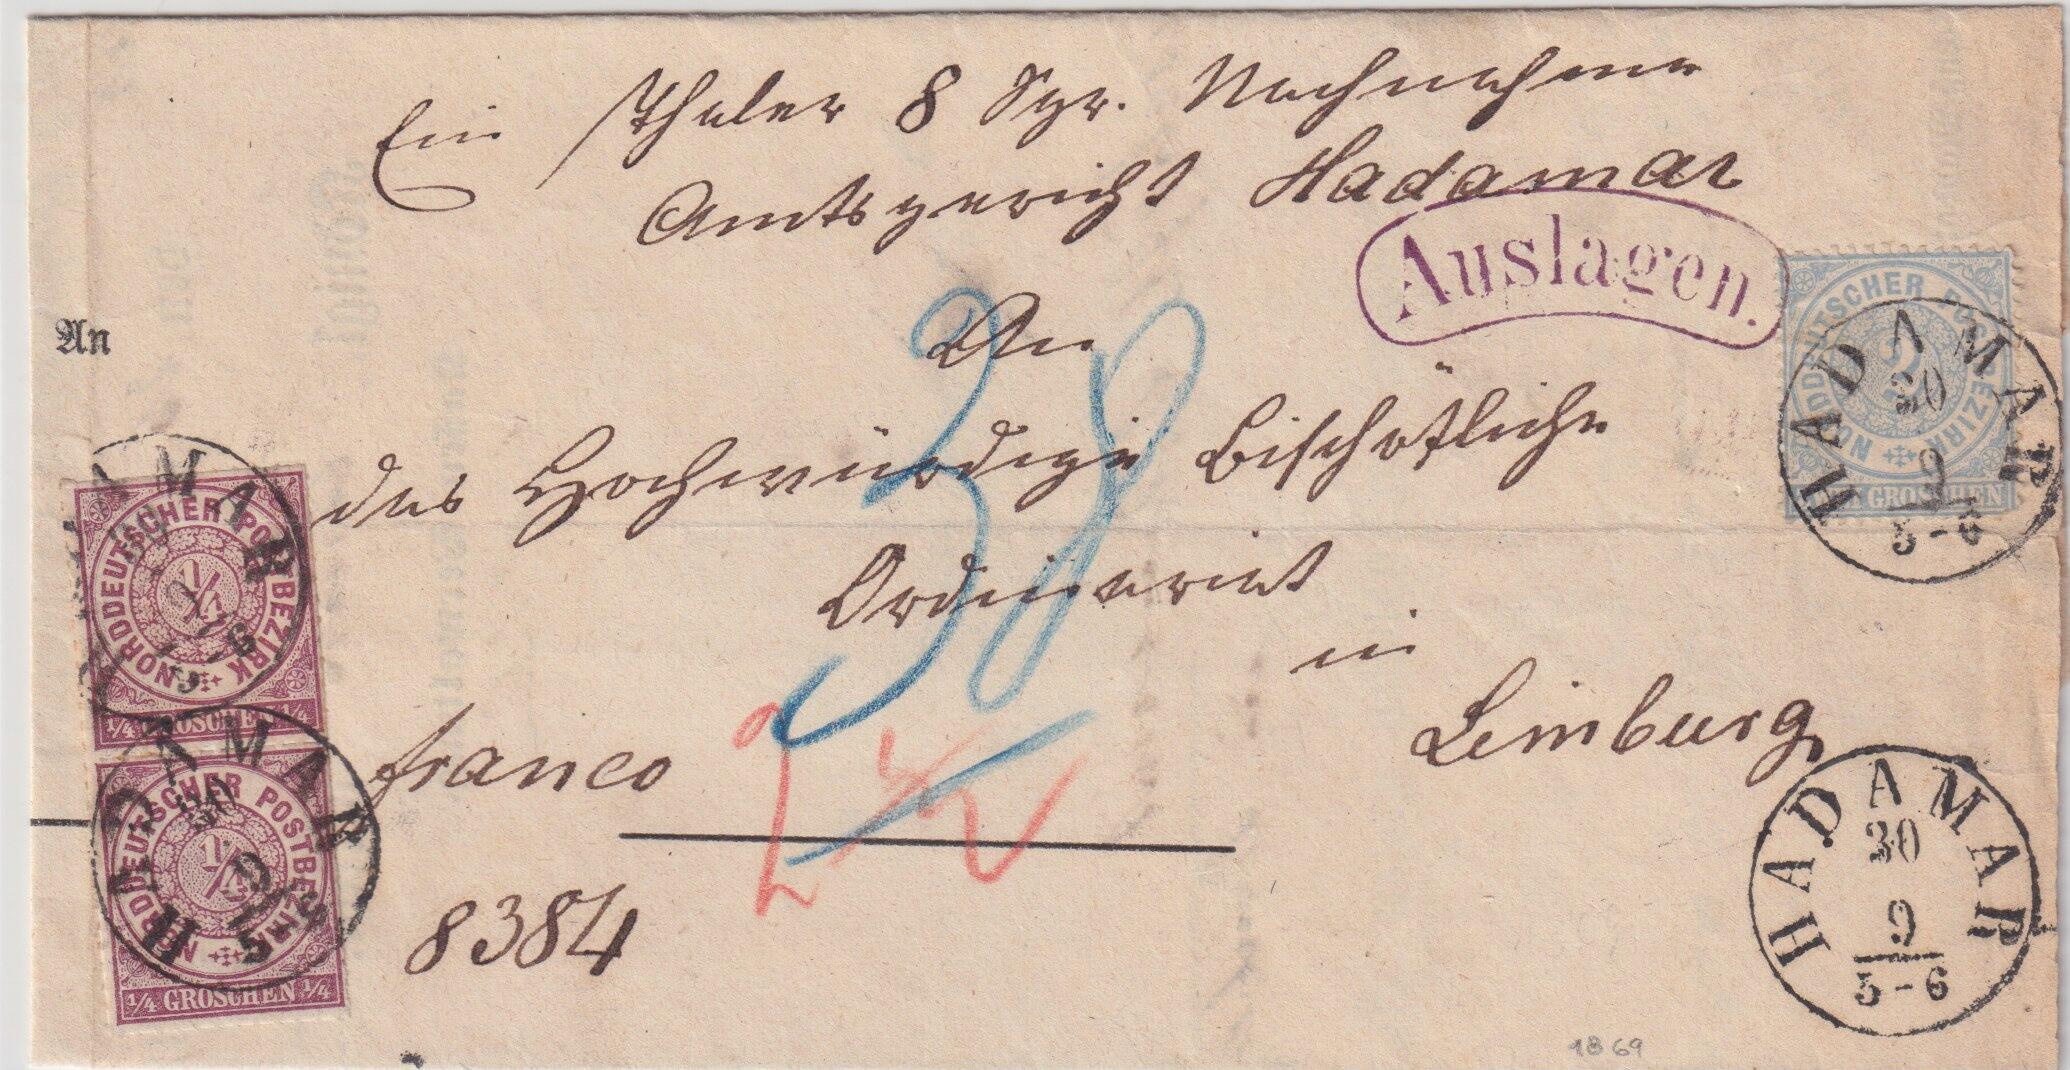 Ein Thaler 8 Sgr. Nachnahme
Amtsgericht Hadamar
Auslagen.
An
An
das Hochwürdige Bischöfliche
Ordinariat
in
Limburg
franco
38
2 1/2
8384
NORDDEUTSCHER POSTBEZIRK
2
GROSCHEN
HADAMAR
30
9
5-6
NORDDEUTSCHER POSTBEZIRK
1/4
1/4 GROSCHEN 1/4
AMAR
9
5-6
NORDDEUTSCHER POSTBEZIRK
1/4
1/4 GROSCHEN 1/4
HADAMAR
30
9
5-
HADAMAR
30
9
5-6
1869